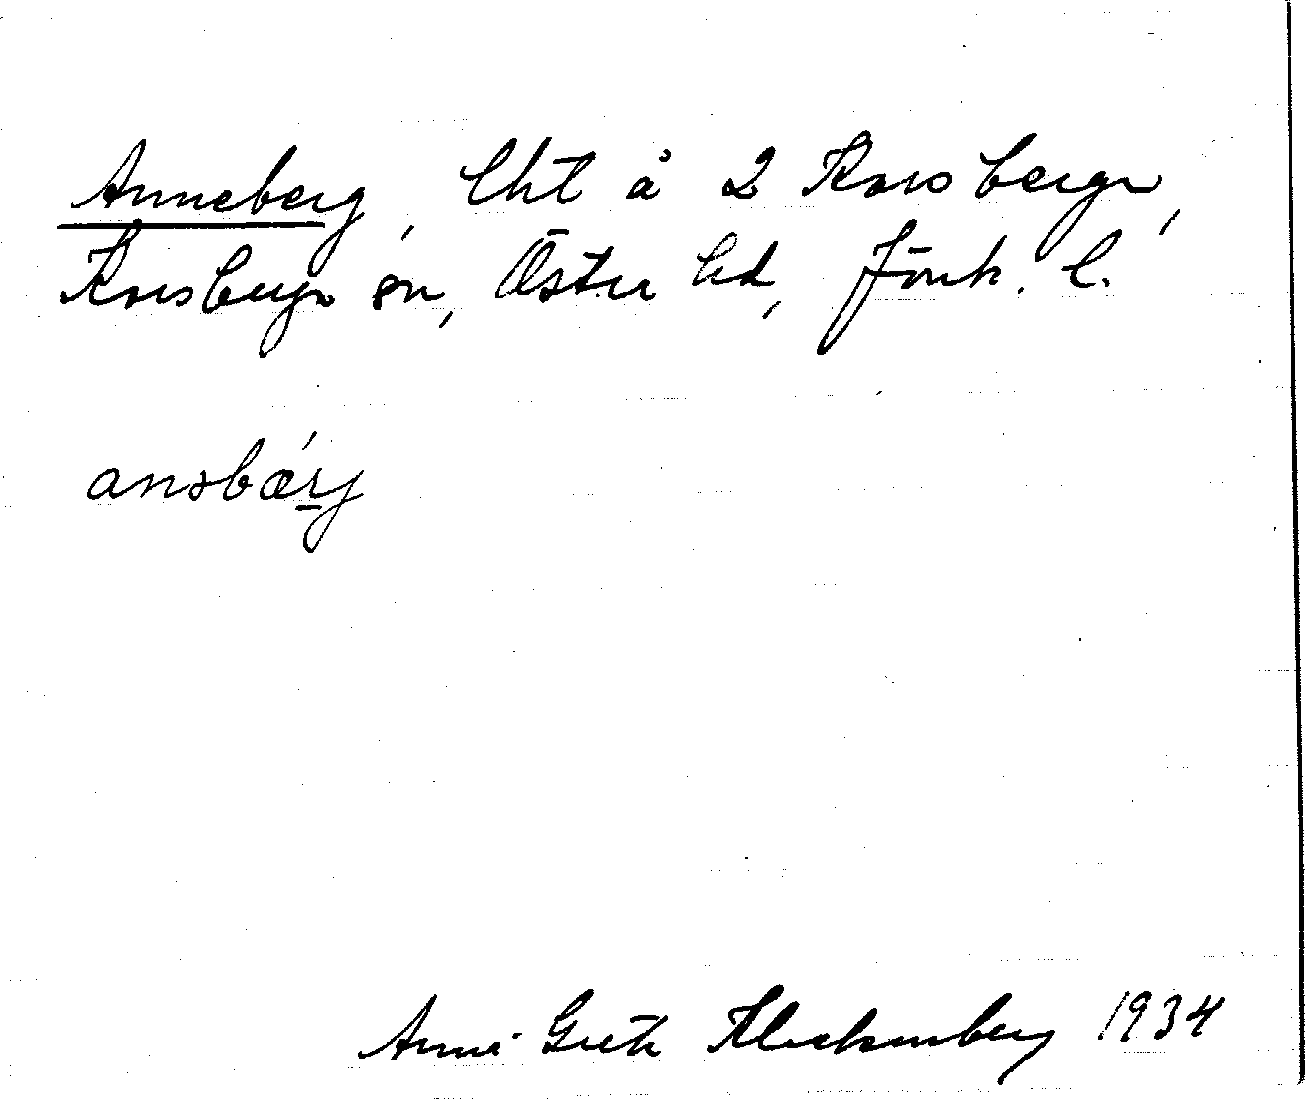 Anneberg, lht å 2 Korsberga,
Korsberga sn, Östra hd, Jönk. l.
ansbærj
Anna-Greth Kleckenberg 1934